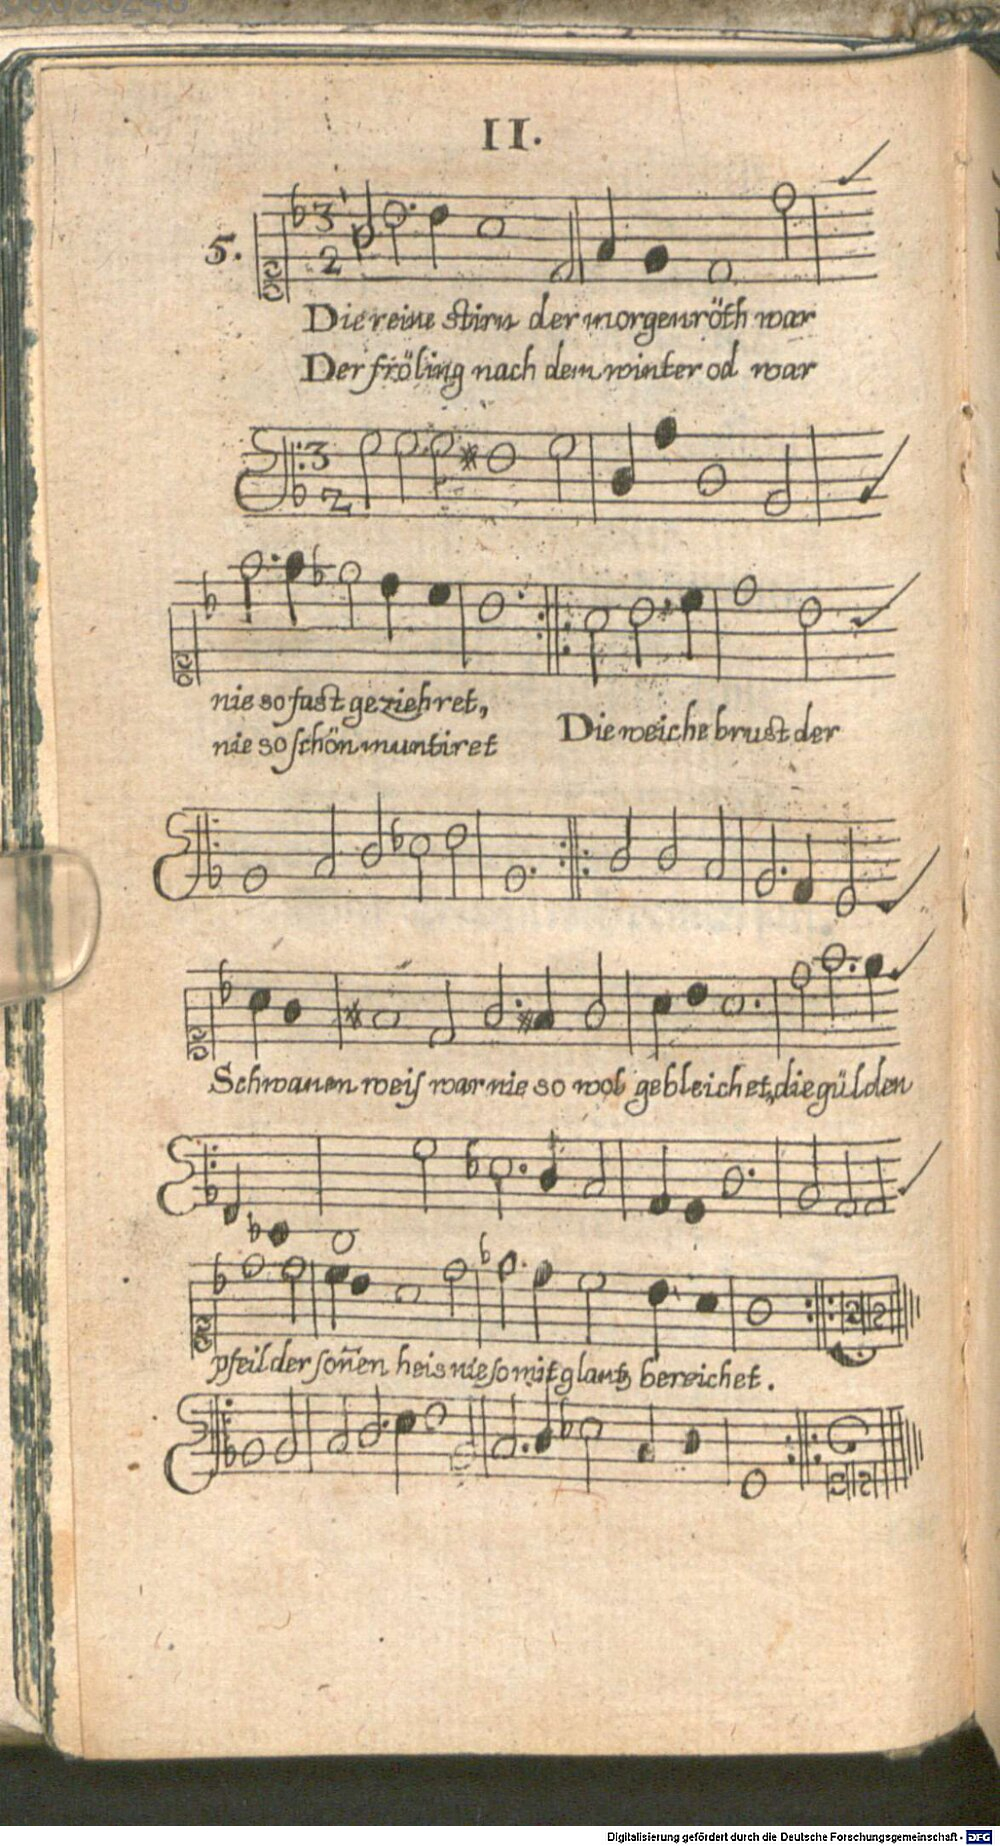 II.
5.
Die reine stirn der morgenröth war
Der fröling nach dem winter od war
nie so fast geziehret,
nie so schön muntiret
Die weiche brust der
Schwanen weis war nie so wol gebleichet, die gülden
pfeil der soñen heis nie so mit glantz bereichet.
Digitalisierung gefördert durch die Deutsche Forschungsgemeinschaft - DFG